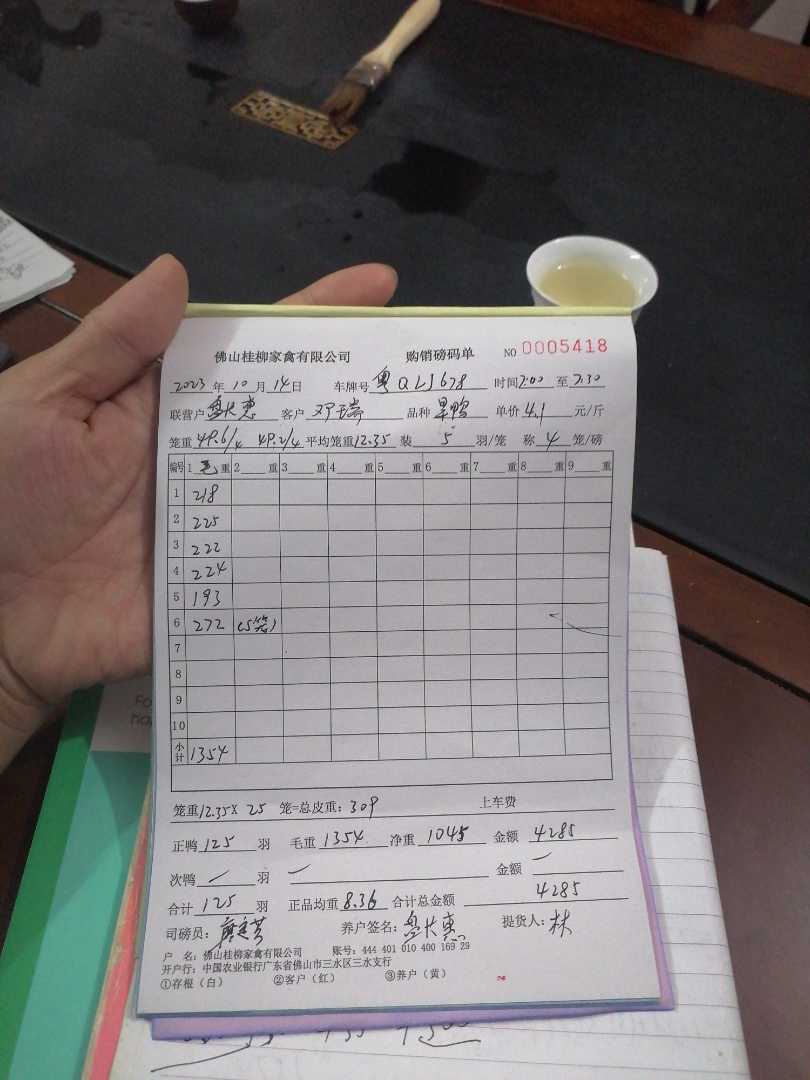 佛山桂柳家禽有限公司 购销磅码单 NO 0005418
2023年10月14日 车牌号 粤QLJ678 时间7:00至7:30
联营户 客户 邓瑞 品种 旱鸭 单价4.1元/斤
笼重49.6/4 49.2/4 平均笼重12.35 装5羽/笼 称4笼/磅
编号 1毛重 2重 3重 4重 5重 6重 7重 8重 9重
1 218
2 225
3 222
4 224
5 193
6 272 (5笼)
7
8
9
10
小计 1354
笼重12.35X25笼=总皮重:309 上车费
正鸭125羽 毛重1354 净重1045 金额4285
次鸭/羽 — 金额 —
合计125羽 正品均重8.36 合计总金额 4285
司磅员: 养户签名: 提货人:林
户 名:佛山桂柳家禽有限公司 账号:444 401 010 400 169 29
开户行:中国农业银行广东省佛山市三水区三水支行
①存根(白) ②客户(红) ③养户(黄)